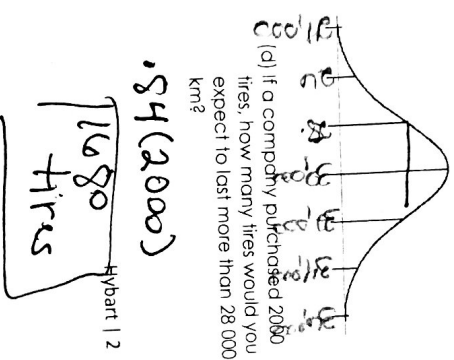 (d) If a company purchased 2000
tires, how many tires would you
expect to last more than 28 000
km?
.84(2000)
1680
tires
Hybart | 2